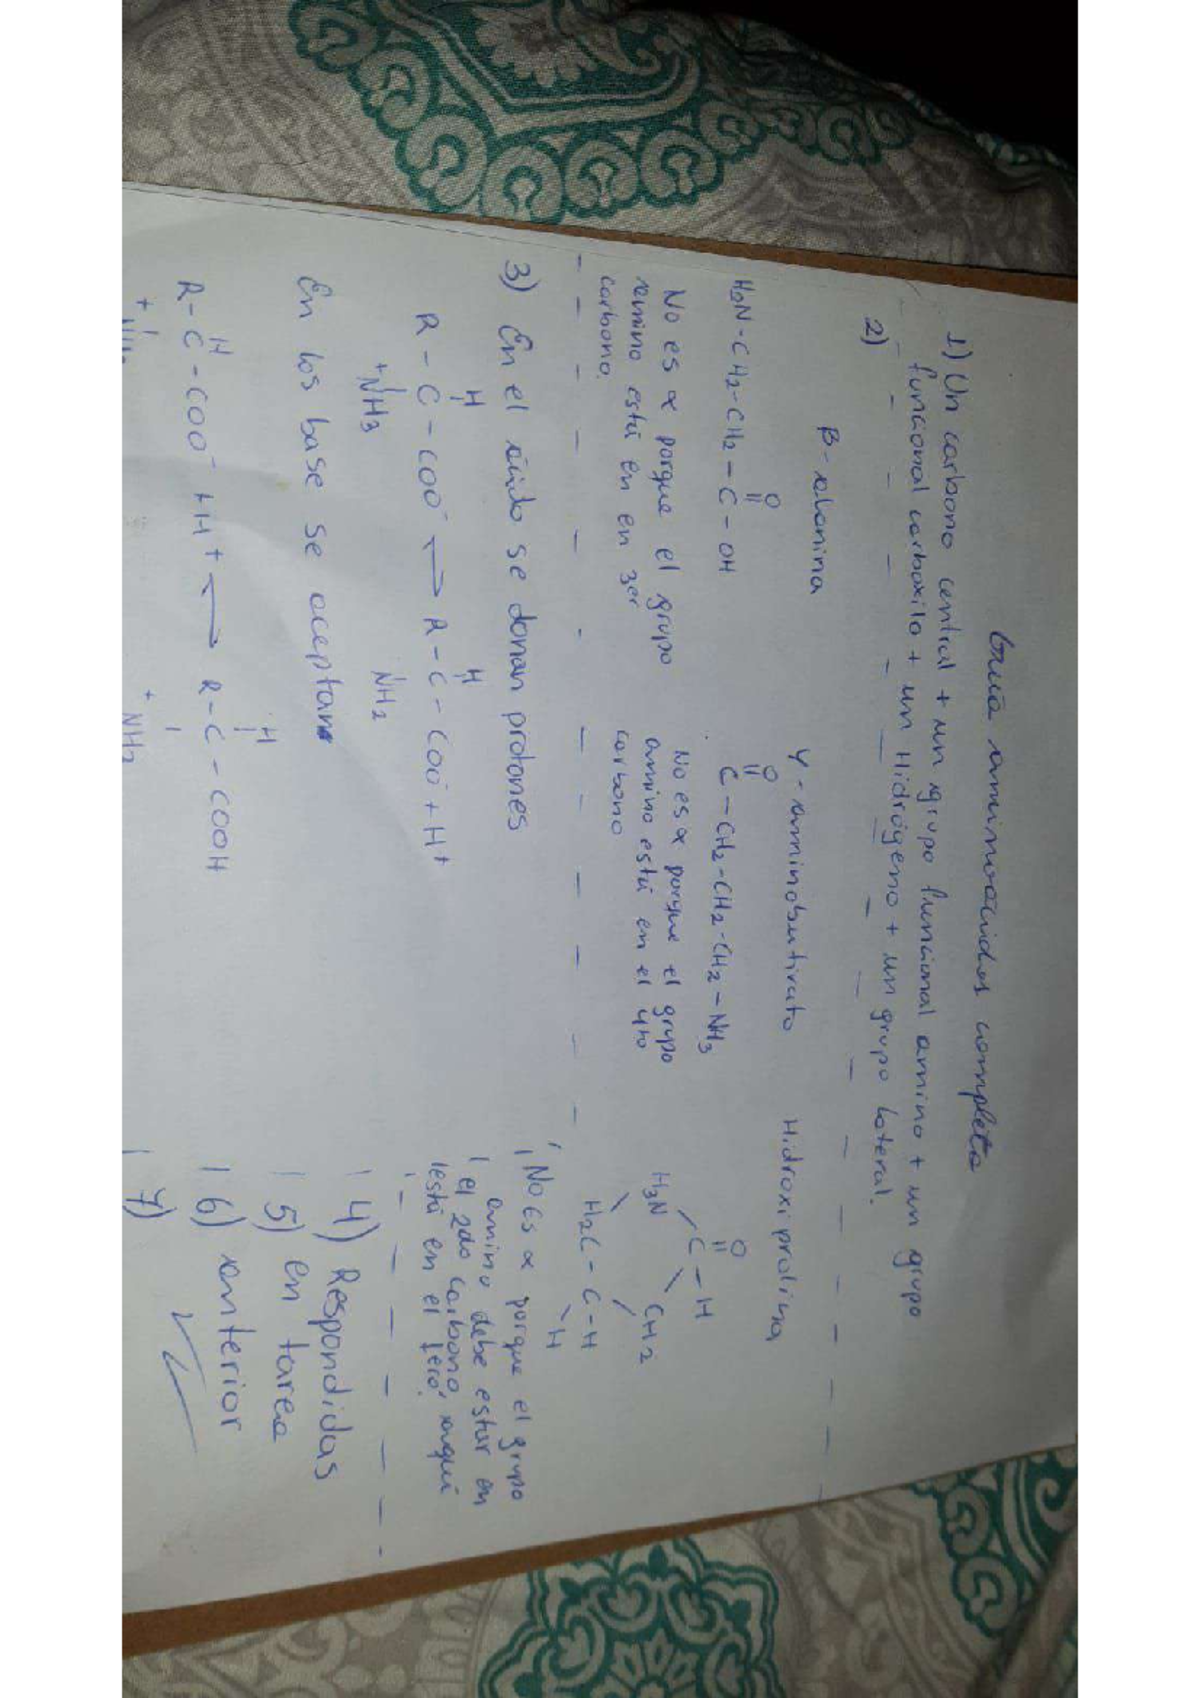 Guía aminoácidos completa
1) Un carbono central + un grupo funcional amino + un grupo
funcional carboxilo + un Hidrógeno + un grupo lateral.
2)
B-alanina
O
H2N-CH2-CH2-C-OH
No es α porque el grupo
amino está en en 3er
carbono.
γ-aminobutirato
O
C-CH2-CH2-CH2-NH3
No es α porque el grupo
amino está en el 4to
carbono
Hidroxiprolina
O
C-H
H3N
CH2
H2C-C-H
H
No es α porque el grupo
amino debe estar en
el 2do carbono, aquí
está en el 1ero.
3) En el ácido se donan protones
H H
R-C-COO⁻ ⇌ R-C-COO⁻ + H+
+NH3 NH2
En los base se aceptan
H H
R-C-COO⁻ + H+ ⇌ R-C-COOH
+ + NH2
4) Respondidas
5) en tarea
6) anterior
7)